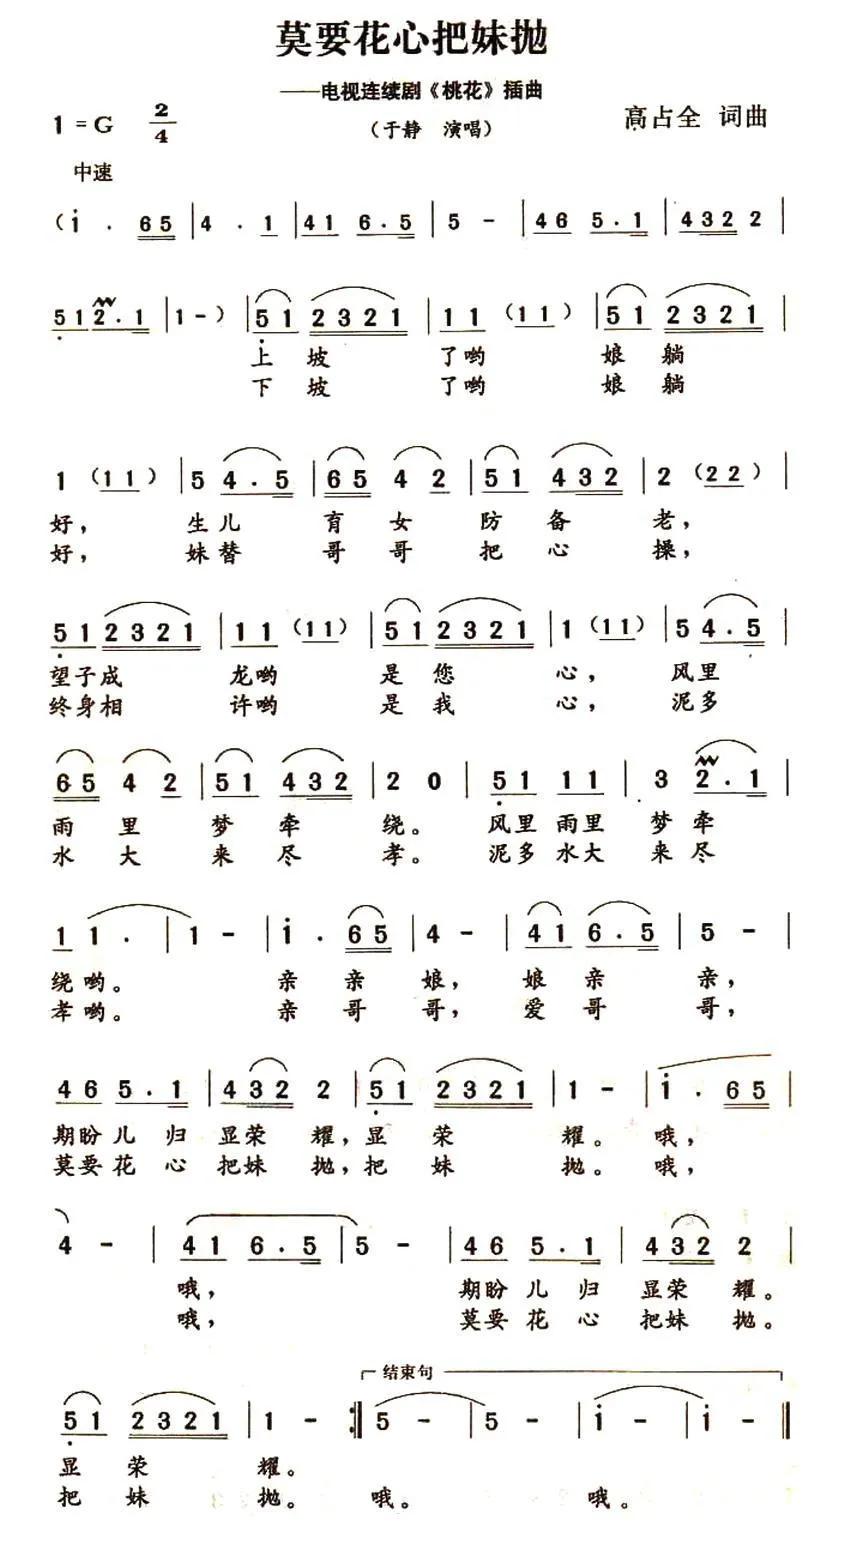 莫要花心把妹抛
——电视连续剧《桃花》插曲
1=G 2/4 (于静 演唱) 高占全 词曲
中速
(i · 65 | 4 · 1 | 41 6·5 | 5 - | 46 5·1 | 4322 2 |
51 2·1 | 1 - ) | 51 2321 | 11 (11) | 51 2321 |
上 坡 了哟 娘 躺
下 坡 了哟 娘 躺
1 (11) | 5 4·5 | 65 4 2 | 51 432 | 2 (22) |
好, 生儿 育 女 防 备 老,
好, 妹替 哥 哥 把 心 操,
51 2321 | 11 (11) | 51 2321 | 1 (11) | 5 4·5 |
望子成 龙哟 是 您 心, 风里
终身相 许哟 是 我 心, 泥多
65 4 2 | 51 432 | 2 0 | 51 11 | 3 2·1 |
雨 里 梦 牵 绕。 风里 雨里 梦 牵
水 大 来 尽 孝。 泥多 水大 来 尽
1 1· | 1 - | i · 65 | 4 - | 41 6·5 | 5 - |
绕 哟。 亲 亲 娘, 娘 亲 亲,
孝 哟。 亲 哥 哥, 爱 哥 哥,
46 5·1 | 432 2 | 51 2321 | 1 - | i · 65 |
期盼 儿 归 显荣 耀, 显 荣 耀。 哦,
莫要 花 心 把妹 抛, 把 妹 抛。 哦,
4 - | 41 6·5 | 5 - | 46 5·1 | 432 2 |
哦, 期盼 儿 归 显荣 耀。
哦, 莫要 花 心 把妹 抛。
结束句
51 2321 | 1 - :|| 5 - | 5 - | i - | i - ||
显 荣 耀。
把 妹 抛。 哦。 哦。